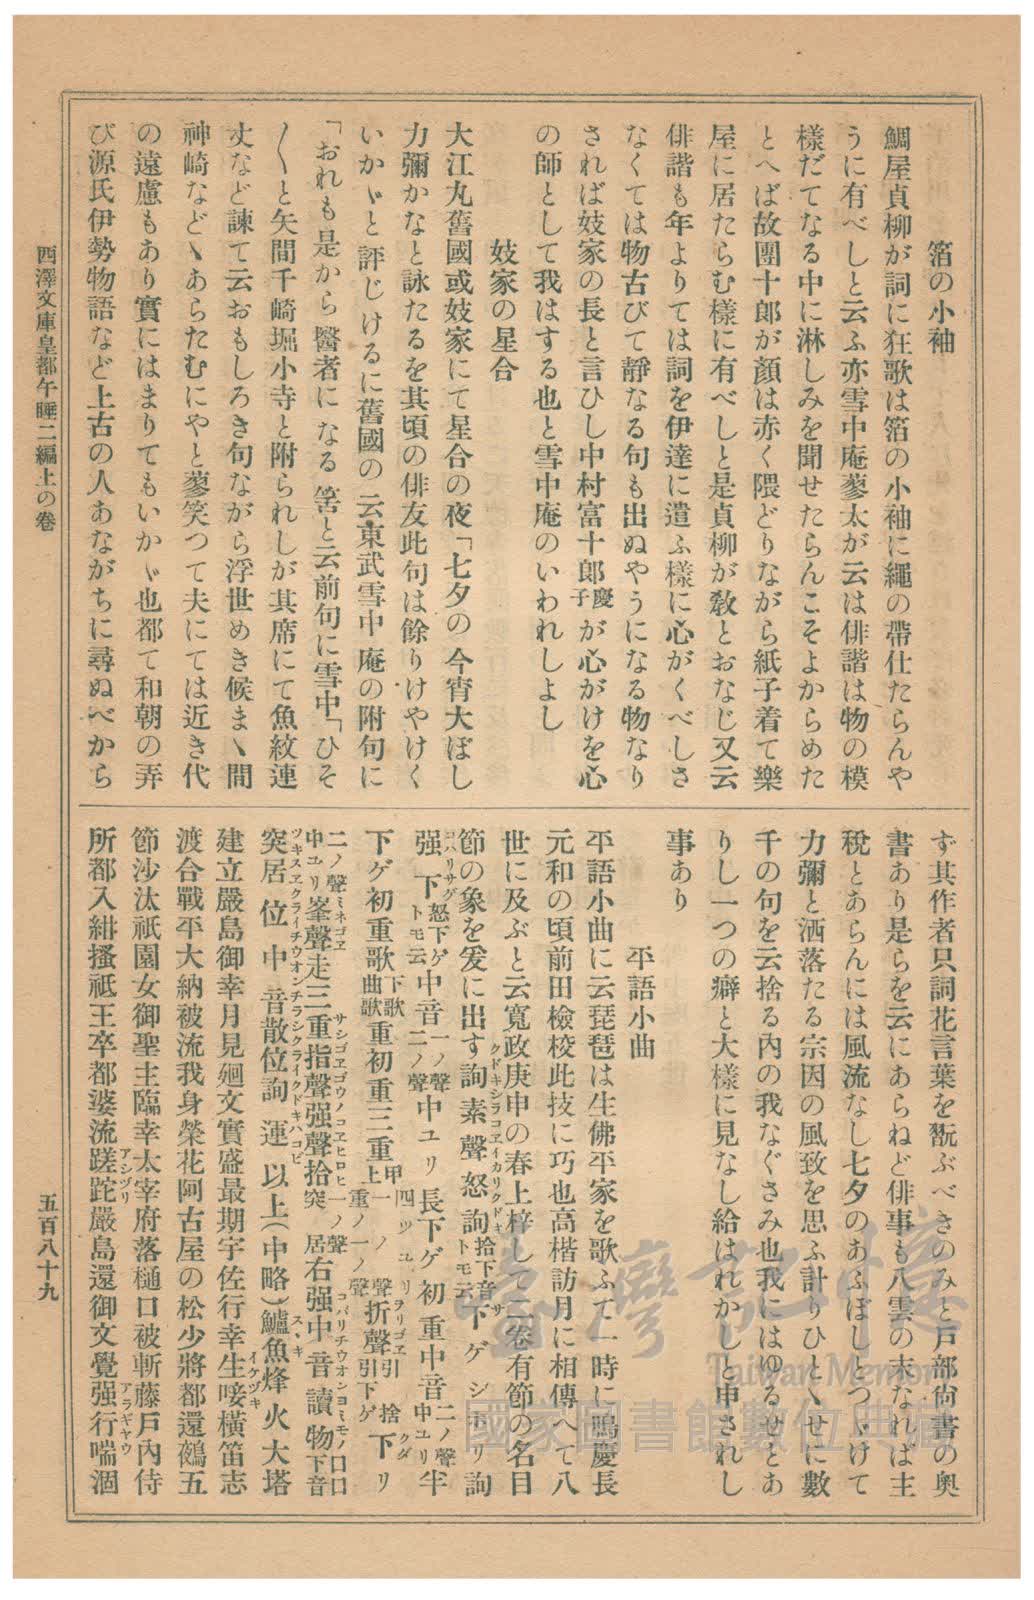 箔の小袖
鯛屋貞柳が詞に狂歌は箔の小袖に繩の帶仕たらんや
うに有べしと云ふ亦雪中庵蓼太が云は俳諧は物の模
樣だてなる中に淋しみを聞せたらんこそよからめた
とへば故團十郎が顏は赤く隈どりながら紙子着て樂
屋に居たらむ樣に有べしと是貞柳が敎とおなじ又云
俳諧も年よりては詞を伊達に遣ふ樣に心がくべしさ
なくては物古びて靜なる句も出ぬやうになる物なり
されば妓家の長と言ひし中村富十郎慶子が心がけを心
の師として我はする也と雪中庵のいわれしよし
妓家の星合
大江丸舊國或妓家にて星合の夜「七夕の今宵大ぼし
力彌かなと詠たるを其頃の俳友此句は餘りけやけく
いかゞと評じけるに舊國の云東武雪中庵の附句に
「おれも是から醫者になる筈と云前句に雪中「ひそ
〱と矢間千崎堀小寺と附られしが其席にて魚紋連
丈など諫て云おもしろき句ながら浮世めき候まゝ間
神崎などゝあらたむにやと蓼笑つて夫にては近き代
の遠慮もあり實にはまりてもいかゞ也都て和朝の弄
び源氏伊勢物語など上古の人あながちに尋ぬべから
ず其作者只詞花言葉を翫ぶべきのみと戸部尙書の奥
書あり是らを云にあらねど俳事も八雲の末なれば主
稅とあらんには風流なし七夕のあふぼしとつゞけて
力彌と洒落たる宗因の風致を思ふ計りひとゝせに數
千の句を云捨る內の我なぐさみ也我にはゆるせとあ
りし一つの癖と大樣に見なし給はれかしと申されし
事あり
平語小曲
平語小曲に云琵琶は生佛平家を歌ふて一時に鳴慶長
元和の頃前田檢校此技に巧也高楷訪月に相傳へて八
世に及ぶと云寬政庚申の春上梓して一卷有節の名目
節の象を爰に出す訽クドキ素聲シラコヱ怒訽イカリクドキ拾下音トモ云下ゲサゲシホリ訽
强下コハリサゲ怒下ゲトモ云中音一ノ聲二ノ聲中ユリ長下ゲ初重中音二ノ聲中ユリ半
下ゲ初重歌下歌曲歌重初重三重甲上四ツユリ重ノ一ノ聲折聲ヲリゴヱ引引下ゲ捨下リクダリ
二ノ聲中ユリ峯聲ミネゴヱ走三重指聲サシゴヱ强聲ゴウノコヱ拾ヒロヒ突一ノ聲居右强中音コハリチウオン讀物ヨミモノ口口下音
突居ツキスヱ位クライ中音チウオン散チラシ位訽クライクドキ運ハコビ以上(中略)鱸スヽキ魚烽火大塔
建立嚴島御幸月見廻文實盛最期宇佐行幸生唼イケヅキ橫笛志
渡合戰平大納被流我身榮花阿古屋の松少將都還鵺五
節沙汰祇園女御聖主臨幸太宰府落樋口被斬藤戸內侍
所都入紺搔祗王卒都婆流蹉跎アシズリ嚴島還御文覺强行アラギヤウ喘涸
西澤文庫皇都午睡二編上の卷
五百八十九
臺灣記憶
Taiwan Memory
國家圖書館數位典藏